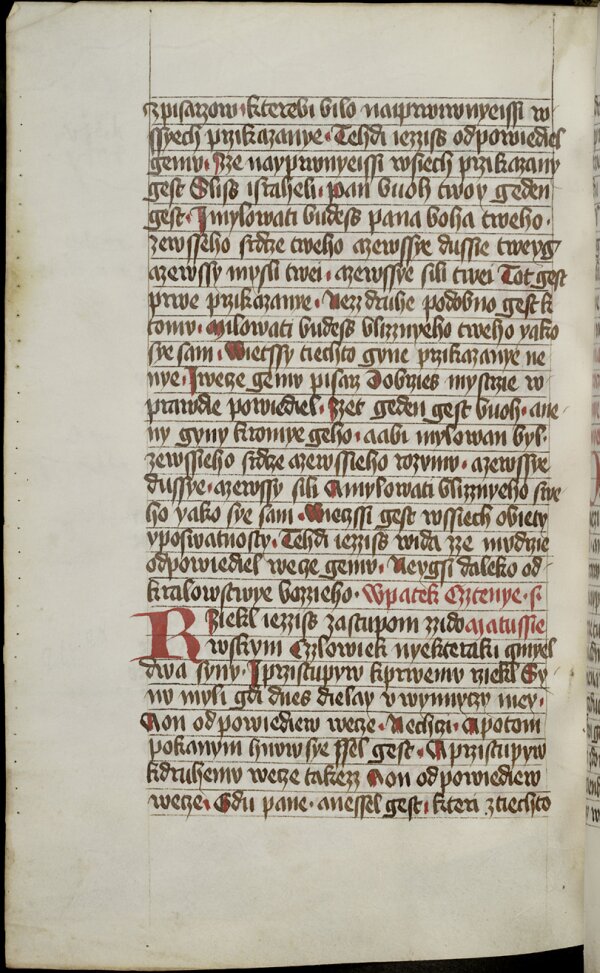 zpisarzow · kterebi bilo naiprwnyeissi w
ssyech przikazanye · Tehdi iezziss odpowiedel
gemv · Zze nayprwnyeissi wssiech przikazany
gest Sliss israheli · pan buoh twoy geden
gest · I mylowati budess pana boha tweho ·
zewsseho srdze tweho azewssye dussie tweyg
azewssy mysli twei · azewssye sili twei Tot gest
prwe przikazanye · Nezz druhe podobno gest k
tomv · Milowati budess blizznyeho tweho yako
sye sam · Wietssy tiechto gyne przikazanye ne
nye · I wecze gemv pisarz Dobrzies mystrzie w
prawdie powiediel · Zzet geden gest buoh · ane
ny gyny kromye geho · aabi mylowan byl ·
zewssieho srdze azewssieho rozvmv · azewssye
dussye · azewssy sili Amylowati blizznyeho swe
ho yako sye sam · Wietssi gest wssiech obiety
yposwatnosty · Tehdi iezziss wida zze mvdrzie
odpowiediel wecze gemv · Neygsi daleko od
kralowstwye bozzieho · Wpatek Cztenye · s
Rziekl iezziss zastupom zzido matussie
wskym Czlowiek nyekteraki gmyel
dwa syny · I przistupyw kprwemv rziekl Sy
nv myli gdi dnes dielay v wynnyczy mey ·
Aon odpowiediew wecze · Nechczi · Apotom
pokanym hnvw sye ssel gest · Aprzistupyw
kdruhemv wecze takezz Aon odpowiediew
wecze · Gdu pane · anessel gest · kteri ztiechto